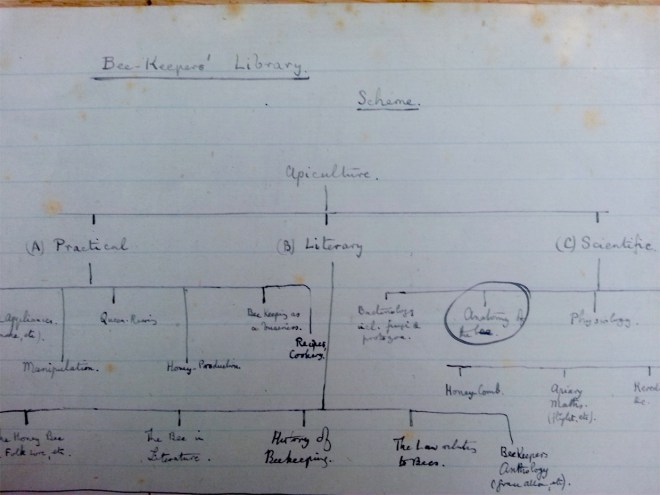 Bee-Keepers' Library.
Scheme.
Apiculture.
(A) Practical
(B) Literary
(C) Scientific
Appliances.
etc).
Queen-Rearing
Bee Keeping as
a business.
Recipes
Cookery.
Manipulation.
Honey-Production
Bacteriology
incl. fungi &
protozoa.
Anatomy of
the bee.
Physiology.
Honey-Comb.
Maths.
(flight, etc).
&c.
The Honey Bee
Folk lore, etc.
The Bee in
Literature.
History of
Beekeeping.
The Law relating
to Bees.
Beekeepers
Anthology
etc).